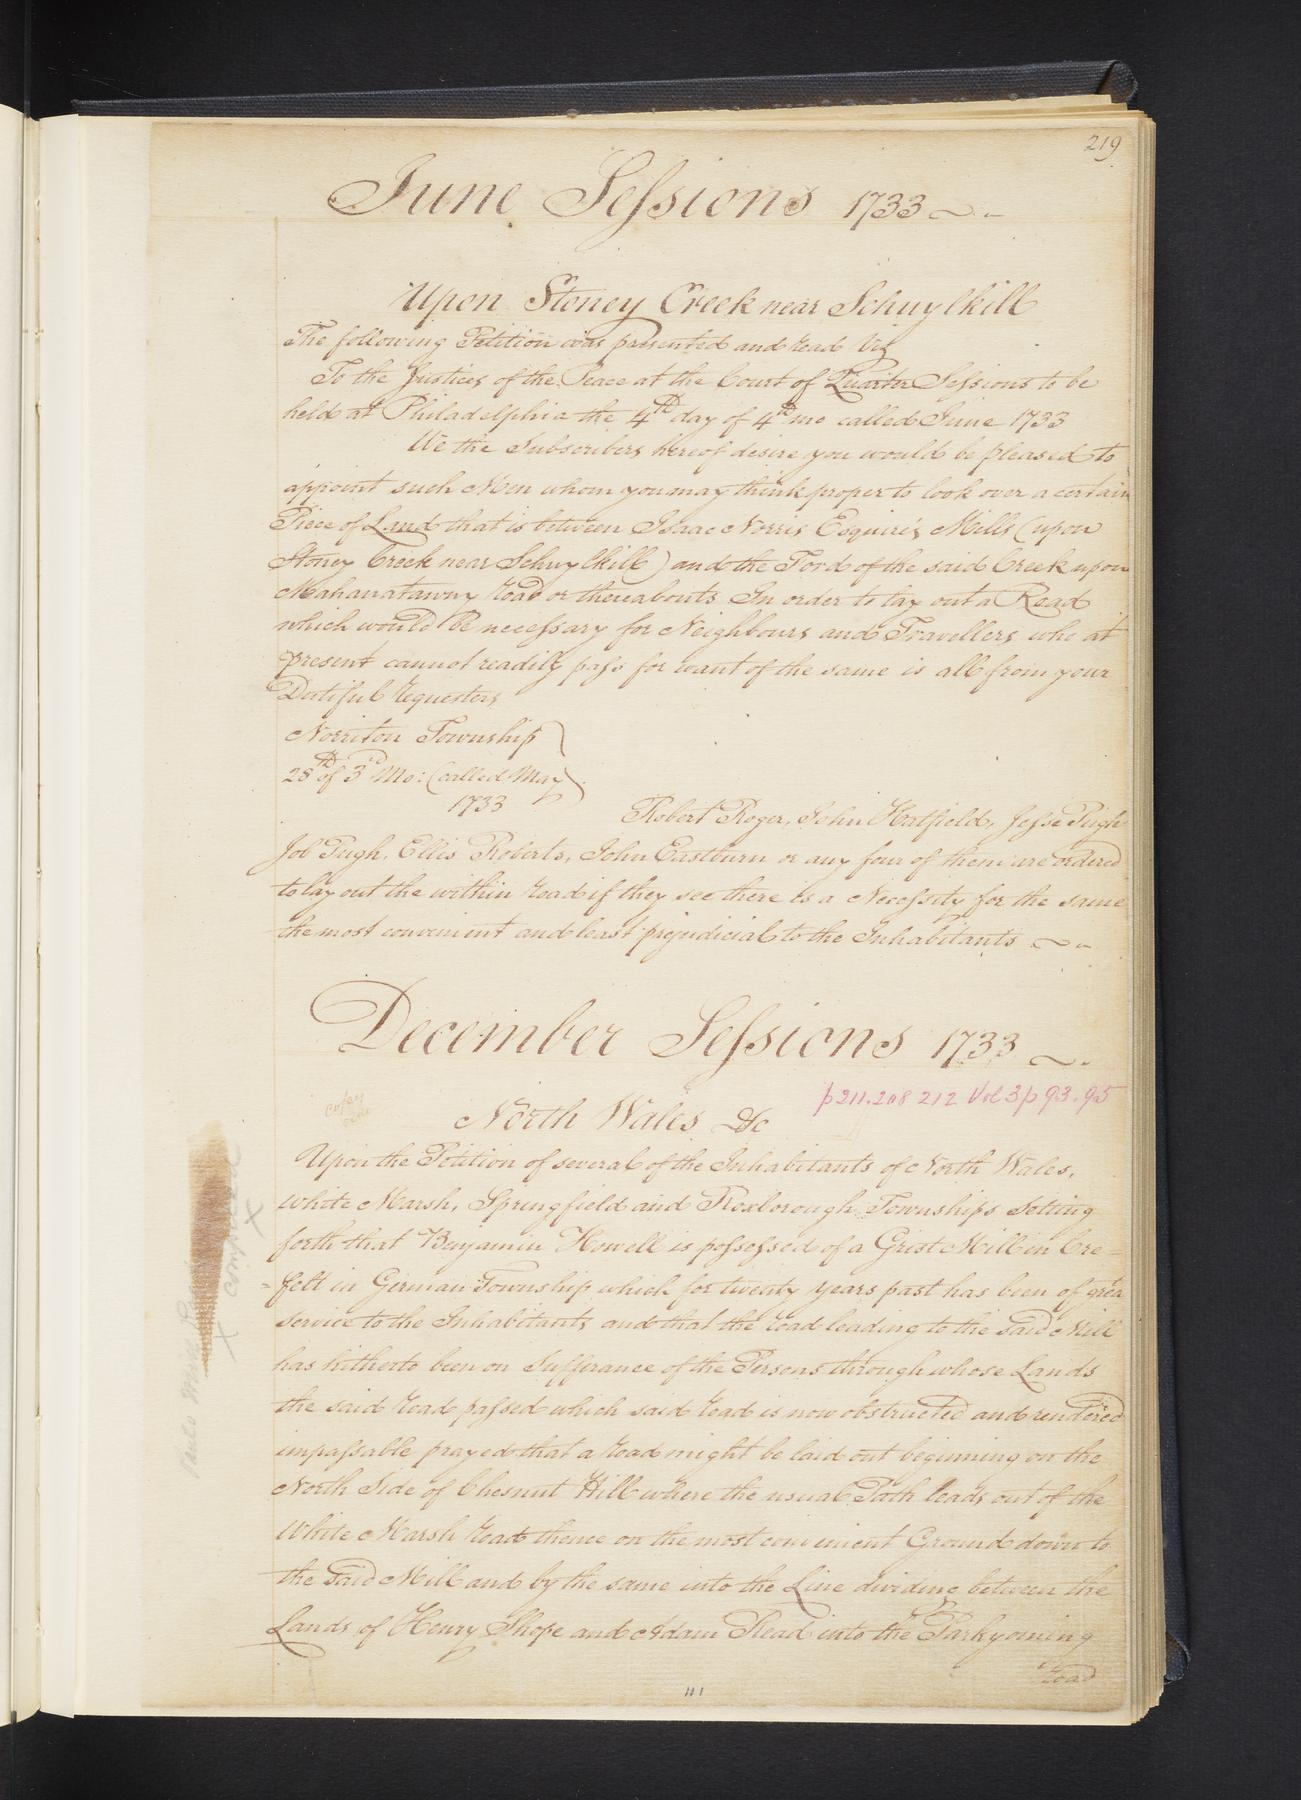 219
June Sessions 1733
Upon Stoney Creek near Schuylkill
The following Petition was presented and read Viz
To the Justices of the Peace at the Court of Quarter Sessions to be
held at Philadelphia the 4th day of 4th mo called June 1733
We the Subscribers hereof desire you would be pleased to
appoint such Men whom you may think proper to look over a certain
Piece of Land that is between Isaac Norris Esquire's Mills (upon
Stoney Creek near Schuylkill) and the Ford of the said Creek upon
Mahanatawny road or thereabouts In order to lay out a Road
which would be necessary for Neighbours and Travellers who at
present cannot readily pass for want of the same is all from your
Dutiful requesters
Norriton Township
28th of 3d Mo: (called May)
1733
Robert Roger, John Hatfield, Jesse Pugh
Job Pugh, Ellis Roberts, John Eastburn or any four of them are ordered
to lay out the within road if they see there is a Necessity for the same
the most convenient and least prejudicial to the Inhabitants
December Sessions 1733
p 211.208 212 Vol 3 p 93.95
copy
North Wales &c
Upon the Petition of several of the Inhabitants of North Wales,
White Marsh, Springfield and Roxborough Townships setting
forth that Benjamin Howell is possessed of a Grist Mill in Cre=
=felt in German Township which for twenty years past has been of great
service to the Inhabitants and that the road leading to the said Mill
has hitherto been on Sufferance of the Persons through whose Lands
the said road passed which said road is now obstructed and rendered
impassable prayed that a road might be laid out beginning on the
North Side of Chesnut Hill where the usual Path leads out of the
White Marsh road thence on the most convenient Ground down to
the said Mill and by the same into the Line dividing between the
Lands of Henry Shope and Adam Read into the Parkyoming
road
X compared X
111